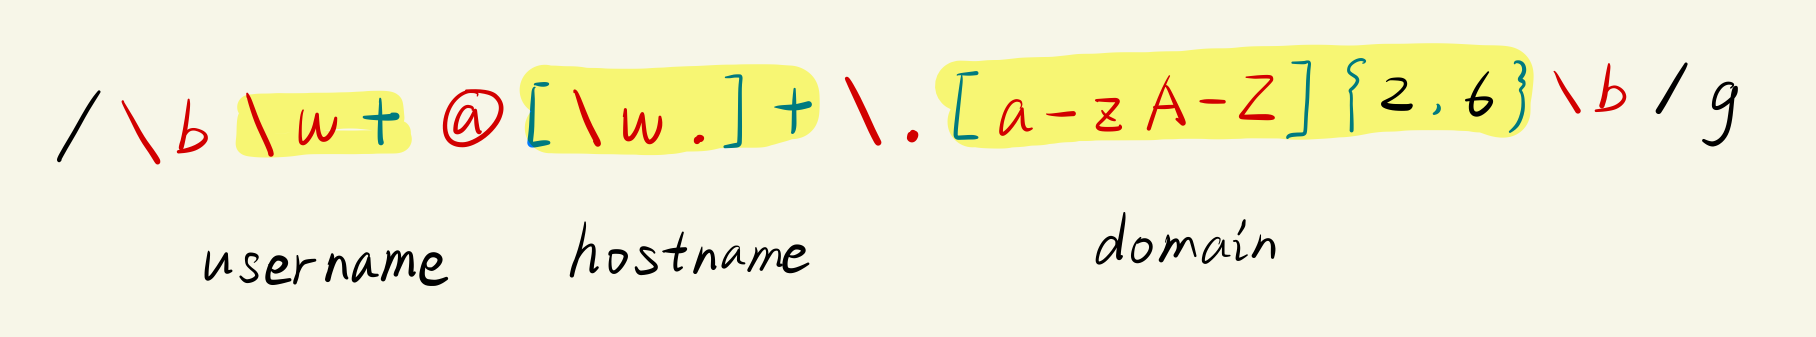 /\b\w+@[\w.]+\.[a-zA-Z]{2,6}\b/g
username hostname domain